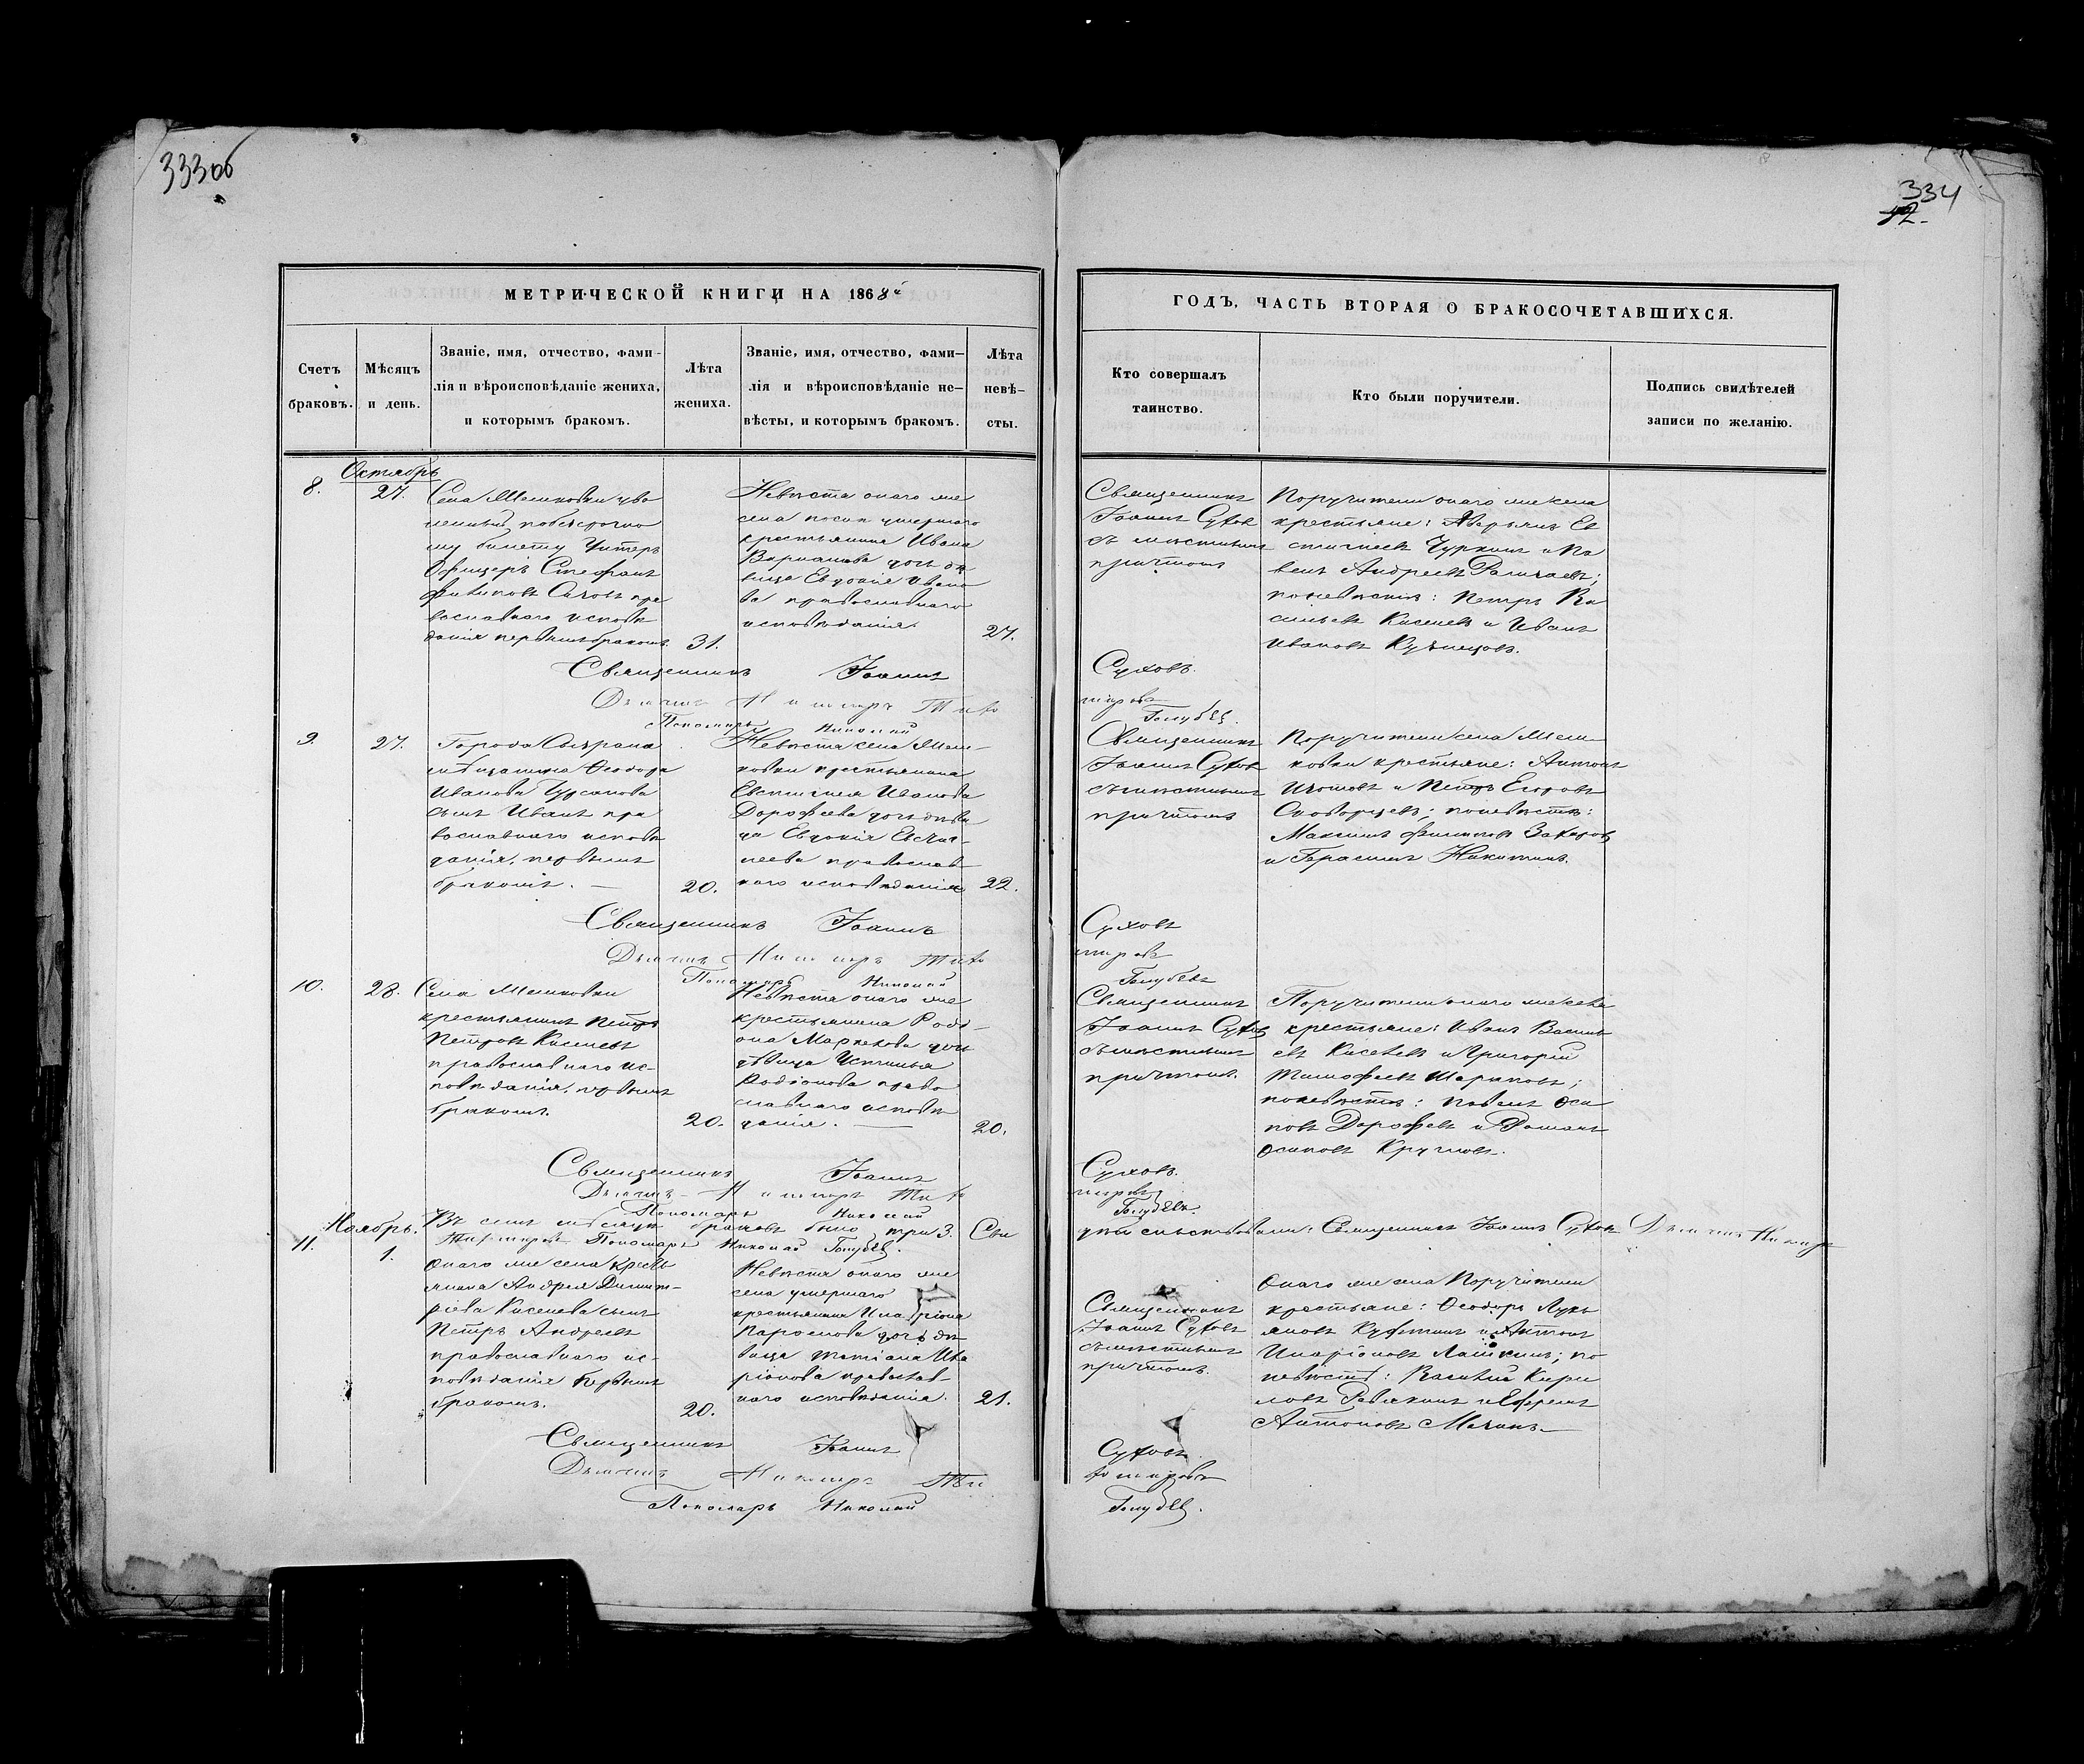 333об
334
42.
МЕТРИЧЕСКОЙ КНИГИ НА 1868й
ГОДЪ, ЧАСТЬ ВТОРАЯ О БРАКОСОЧЕТАВШИХСЯ.
Счетъ
браковъ.
Мѣсяцъ
и день.
Званіе, имя, отчество, фами-
лія и вѣроисповѣданіе жениха,
и которымъ бракомъ.
Лѣта
жениха.
Званіе, имя, отчество, фами-
лія и вѣроисповѣданіе не-
вѣсты, и которымъ бракомъ.
Лѣта
невѣ-
сты.
Кто совершалъ
таинство.
Кто были поручители.
Подпись свидѣтелей
записи по желанію.
Октябрь
8.
27.
Села
му билету Унтеръ
Офицеръ Стефанъ
Филиповъ пра
вославнаго исповѣ
данія первымъ бракомъ
31.
Невѣста онаго же
села умершаго
крестьянина Ивана
дочь дѣ
вица Евдокія Ивано
ва православнаго
исповѣданія.
27.
Священникъ
Іоаннъ Сухов
съ мѣстнымъ
причтомъ
Поручители онаго же села
крестьяне:
Чуркинъ и Па
велъ Андреевъ
по невѣстѣ: Петръ Ва
сильевъ Киселевъ и Иванъ
Ивановъ Кузнецовъ.
Священникъ Іоаннъ Суховъ.
Дьячекъ
Пономарь Николай Голубев.
9.
27.
Города Сызрана
мѣщанина Ѳеодора
Иванова
сынъ Иванъ пра
вославнаго исповѣ
данія, первымъ
бракомъ.
20.
Невѣста села
ковки крестьянина
Евстигнея Иванова
Дорофеева дочь дѣви
ца Евдокія Евстиг-
неева православ
наго исповѣданія
22.
Священникъ
Іоаннъ Сухов
съ мѣстнымъ
причтомъ
Поручители села
ковки крестьяне: Антонъ
и Петръ Егоровъ
по невѣстѣ:
Максимъ Филиповъ Захаров
и Герасимъ Никитинъ.
Священникъ Іоаннъ Суховъ
Дьячекъ
Пономарь Николай Голубевъ
10.
28.
Села
крестьянинъ Петръ
Петровъ Киселевъ
православнаго ис-
повѣданія, первымъ
бракомъ.
20.
Невѣста онаго же
крестьянина Роді-
она Маркелова дочь
дѣвица Устинья
Родіонова право
славнаго исповѣ
данія.
20.
Священникъ
Іоаннъ Сухов
съ мѣстнымъ
причтомъ.
Поручители онаго же села
крестьяне: Иванъ Василь
евъ Киселевъ и Григорій
Тимофеевъ
по невѣстѣ: Павелъ Оси
повъ Дорофеевъ и Романъ
Осиповъ Кругловъ.
Священникъ Іоаннъ Суховъ.
Дьячекъ
Пономарь Николай Голубевъ.
Въ семъ мѣсяцѣ браковъ было три 3. Сви
дѣтельствовали: Священникъ Іоаннъ Сухов Дьячекъ
Пономарь Николай Голубев.
Ноябрь.
11.
1.
Онаго же села кресть
янина Андрея Димит-
ріева Киселева сынъ
Петръ Андреевъ
православнаго ис-
повѣданія первымъ
бракомъ.
20.
Невѣста онаго же
села умершаго
крестьянина Иларіона
дочь дѣ
вица Татіана Ила
ріонова православ-
наго исповѣданія.
21.
Священникъ
Іоаннъ Суховъ
съ мѣстнымъ
причтомъ.
Онаго же села Поручители
крестьяне: Ѳеодоръ Лукь
яновъ и Антонъ
Иларіоновъ по
невѣстѣ: Василій Кири
ловъ и Ефремъ
Антоновъ
Священникъ Іоаннъ Суховъ
Дьячекъ
Пономарь Николай Голубев.